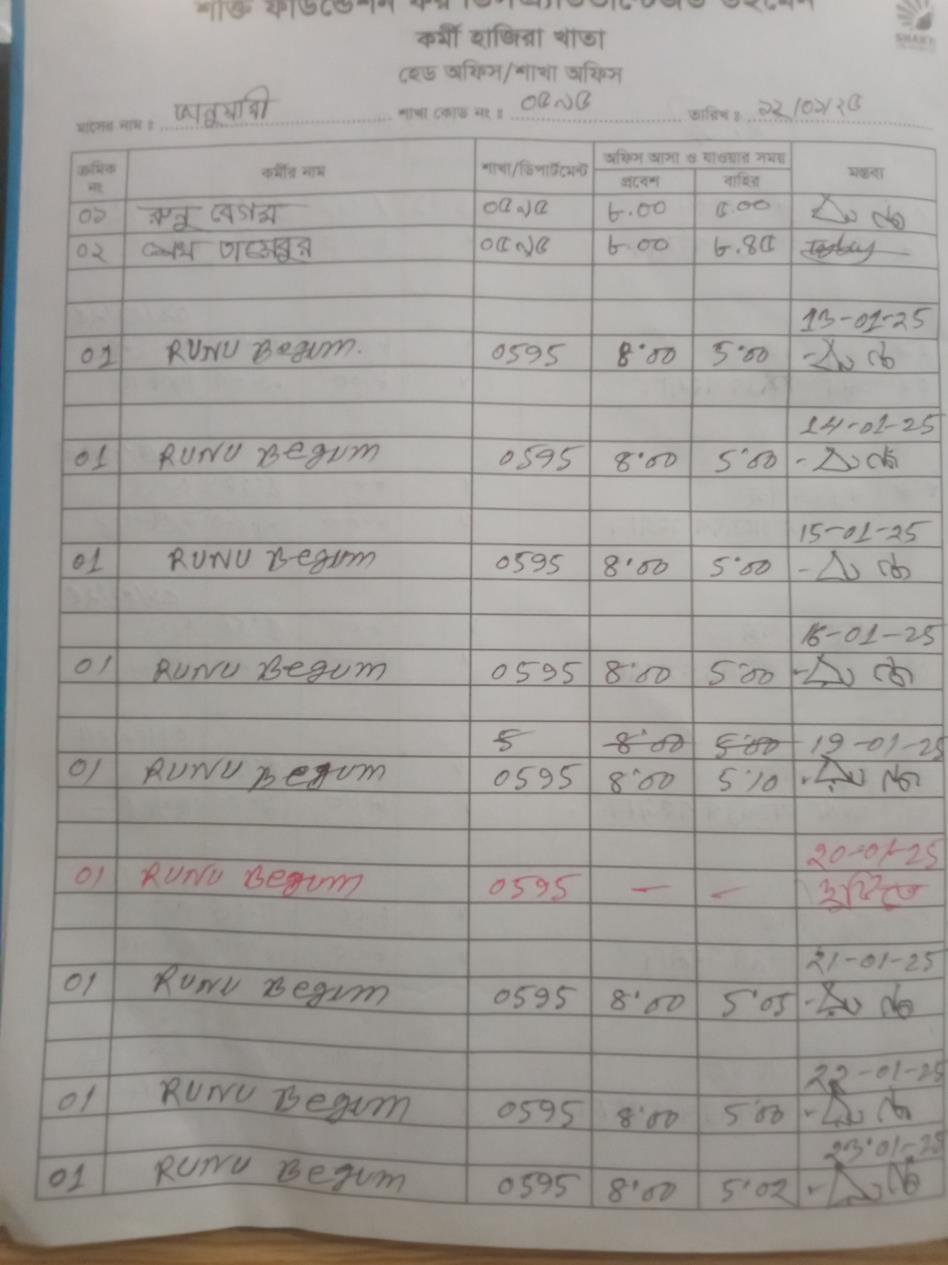 শক্তি ফাউন্ডেশন ফর
কর্মী হাজিরা খাতা
হেড অফিস/শাখা অফিস
মাসের নাম ঃ জানুয়ারী শাখা কোড নং ঃ ০৫৯৫ তারিখ ঃ ১২/০১/২৫
ক্রমিক নং কর্মীর নাম শাখা/ডিপার্টমেন্ট অফিস আসা ও যাওয়ার সময় মন্তব্য
প্রবেশ বাহির
০১ রুনু বেগম ০৫৯৫ ৮.০০ ৫.০০
০২ ০৫৯৫ ৮.০০ ৮.৪৫
13-01-25
01 RUNU Begum. 0595 8'00 5'00
14-01-25
01 RUNU Begum 0595 8'00 5'00
15-01-25
01 RUNU Begum 0595 8'00 5'00
16-01-25
01 RUNU Begum 0595 8'00 5'00
5 8'00 5'00 19-01-25
01 RUNU Begum 0595 8'00 5'10
20-01-25
01 RUNU Begum 0595 — — ছুটিতে
21-01-25
01 RUNU Begum 0595 8'00 5'05
22-01-25
01 RUNU Begum 0595 8'00 5'00
23'01-25
01 RUNU Begum 0595 8'00 5'02